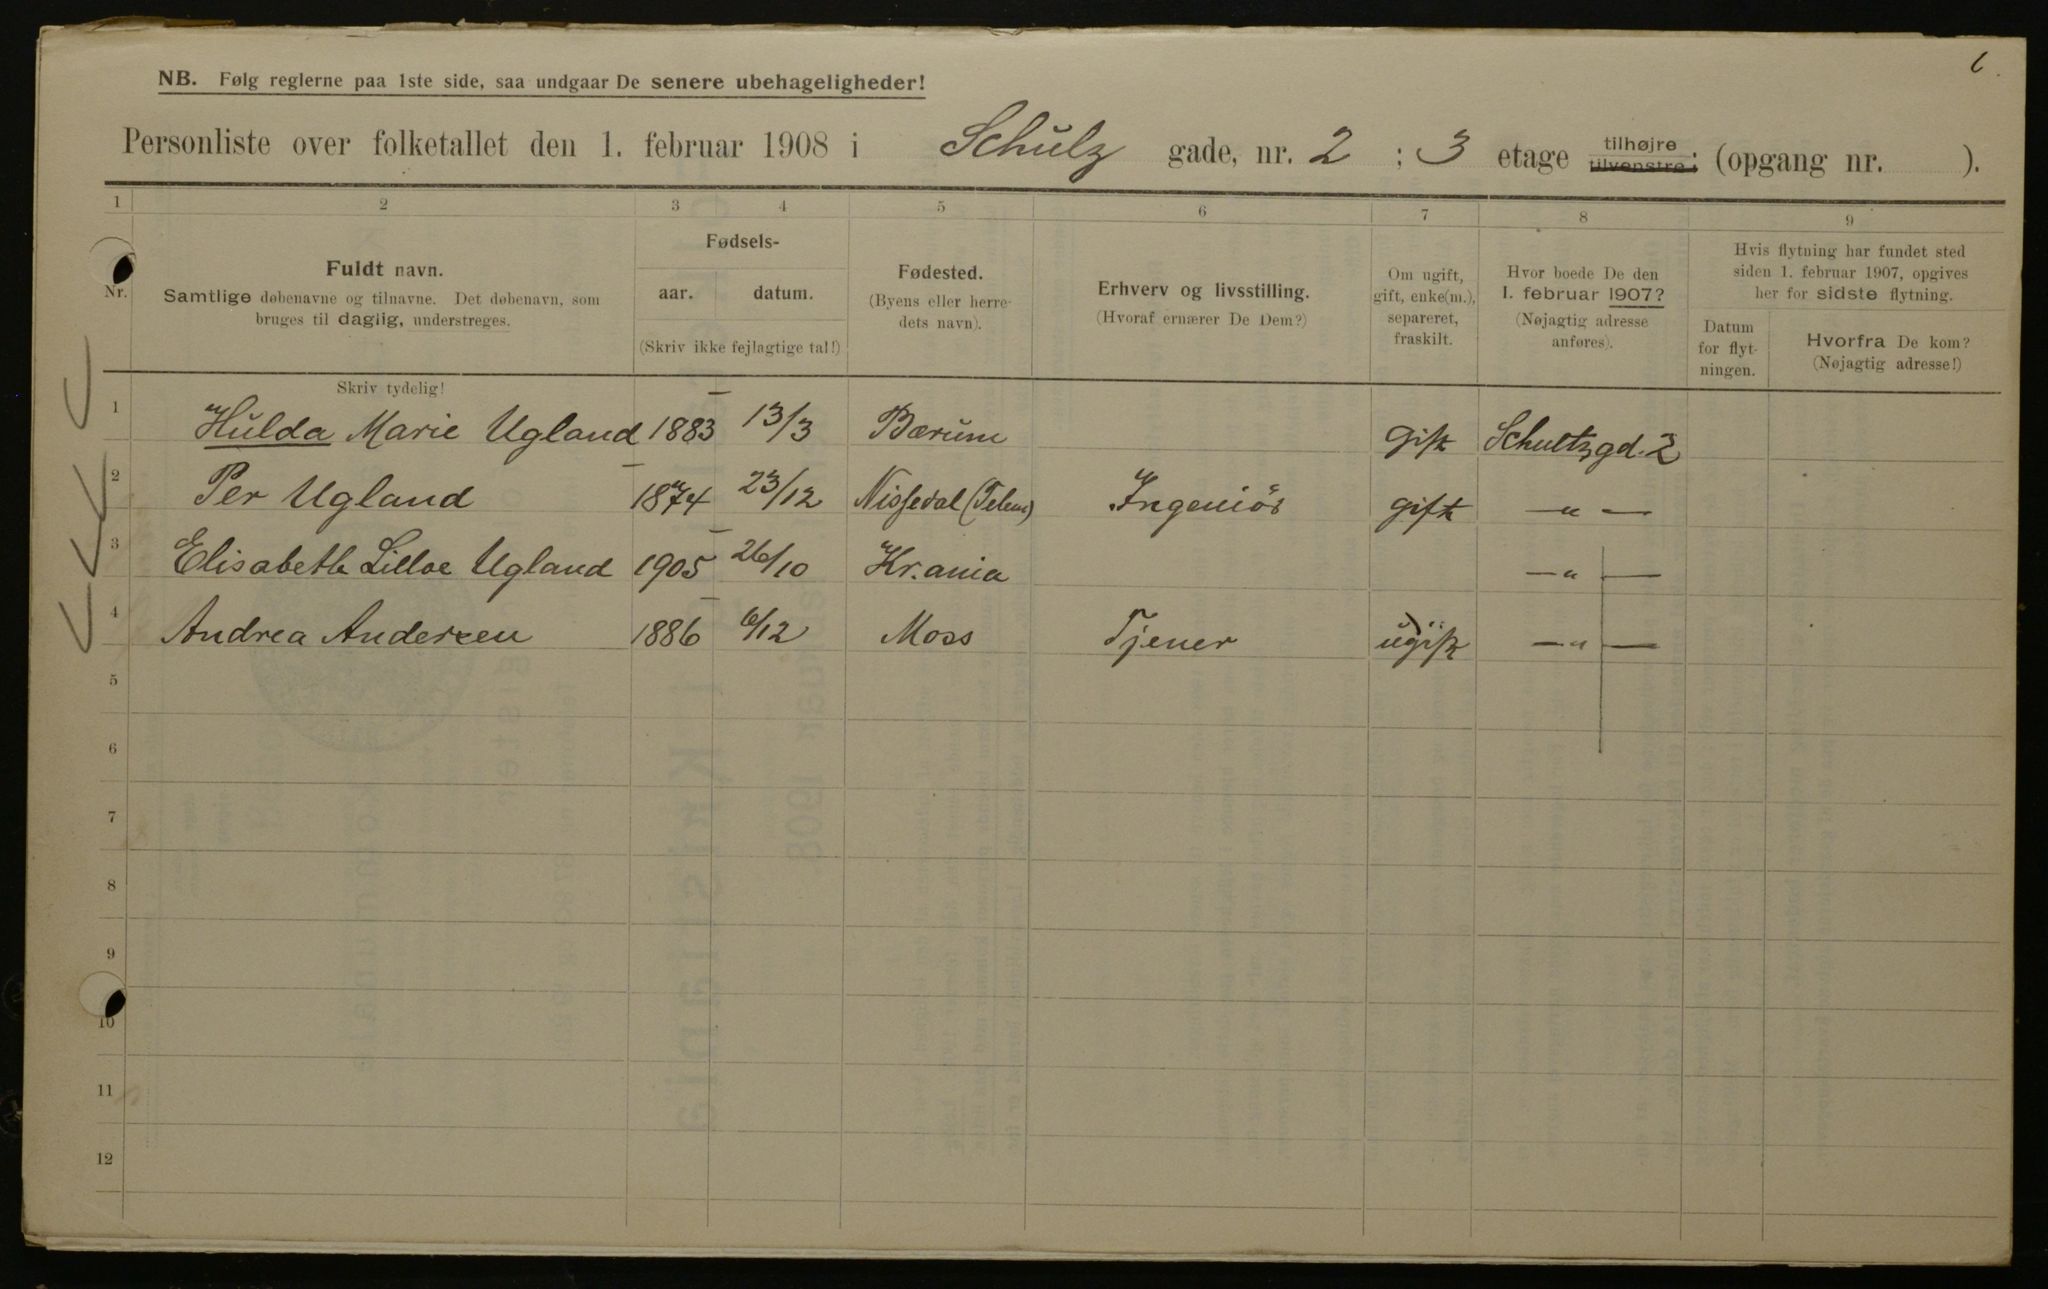 6.
NB. Følg reglerne paa 1ste side, saa undgaar De senere ubehageligheder!
Personliste over folketallet den 1. februar 1908 i Schulz gade, nr. 2 ; 3 etage tilhøjre tilvenstre ; (opgang nr. ).
1 2 3 4 5 6 7 8 9
Nr.
Fuldt navn.
Samtlige døbenavne og tilnavne. Det døbenavn, som
bruges til daglig, understreges.
Skriv tydelig!
Fødsels-
aar. datum.
(Skriv ikke fejlagtige tal!)
Fødested.
(Byens eller herre-
dets navn).
Erhverv og livsstilling.
(Hvoraf ernærer De Dem?)
Om ugift,
gift, enke(m.),
separeret,
fraskilt.
Hvor boede De den
1. februar 1907?
(Nøjagtig adresse
anføres).
Hvis flytning har fundet sted
siden 1. februar 1907, opgives
her for sidste flytning.
Datum
for flyt-
ningen.
Hvorfra De kom?
(Nøjagtig adresse!)
1 Hulda Marie Ugland 1883 13/3 Bærum gift Schultzgd. 2
2 Per Ugland 1874 23/12 Nissedal (Telem) Ingeniör gift — " —
3 Elisabeth Lilloe Ugland 1905 26/10 Kr.ania — " —
4 Andrea Andersen 1886 6/12 Moss Tjener ugift — " —
5
6
7
8
9
10
11
12